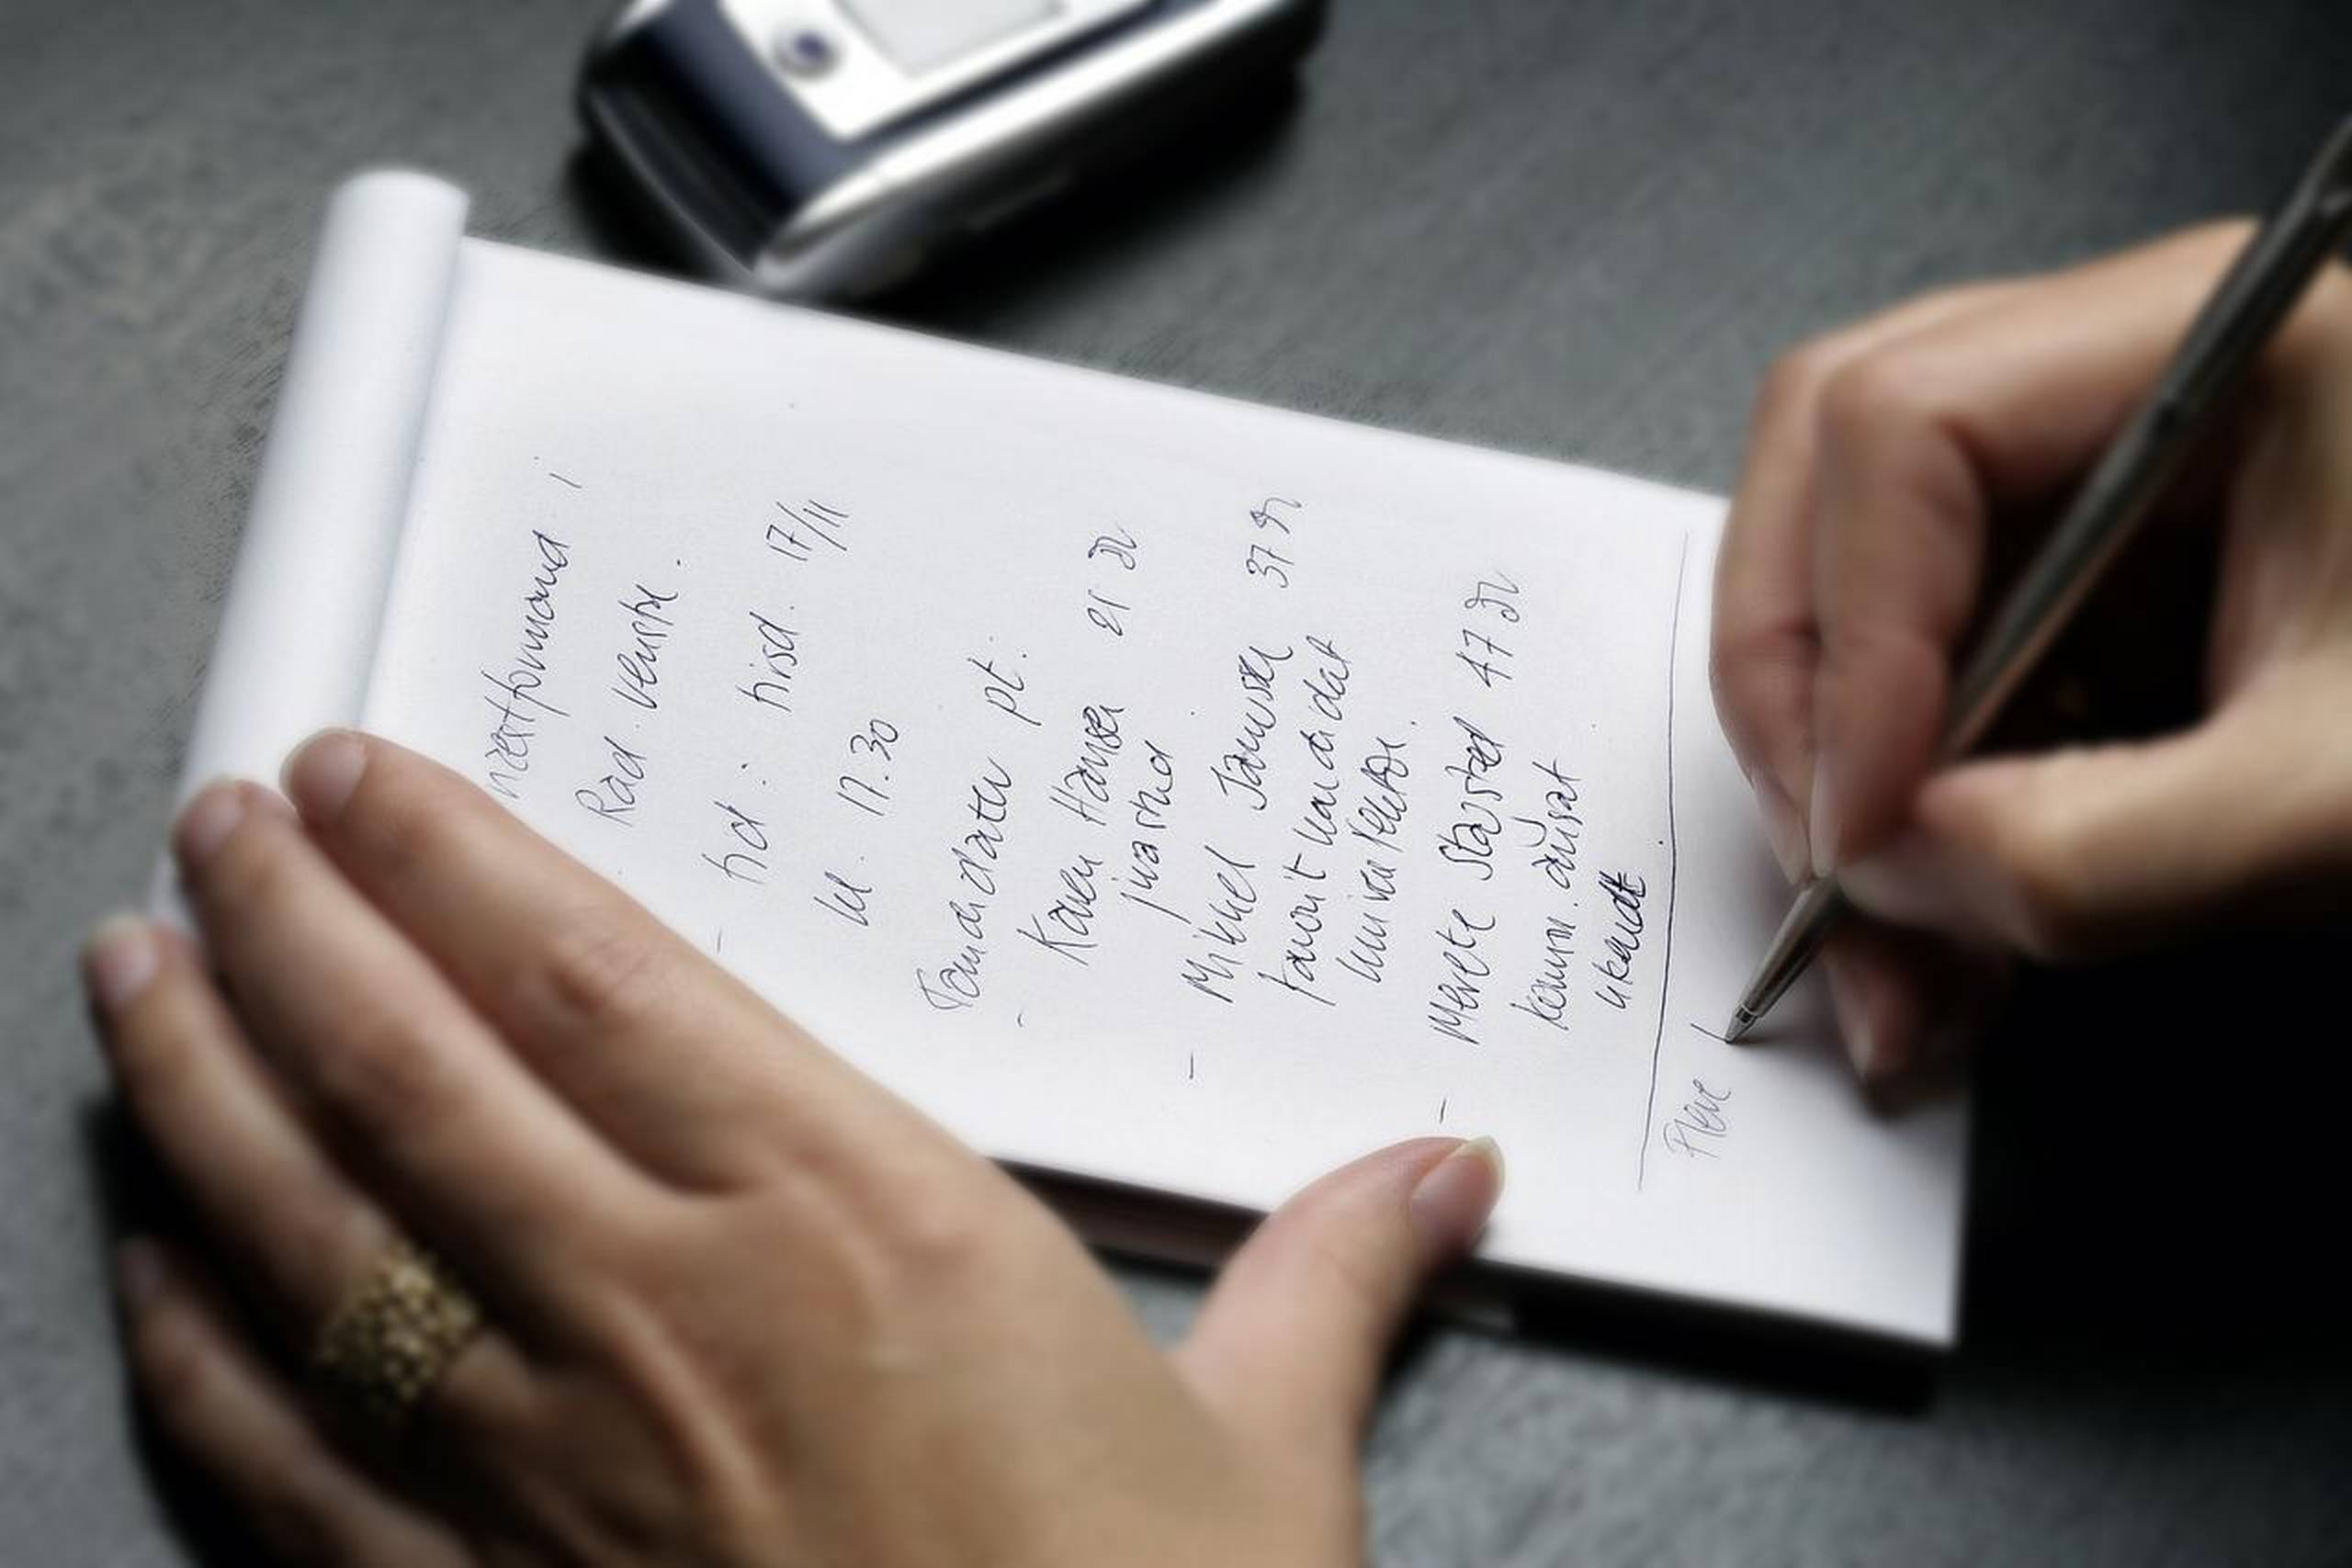 næstformand i
Rad. venstre.
tid: tirsd. 17/11
kl. 17.30
Kandidater pt.
- Karen Hansen 21 år
jurastud
- Mikkel Jansen 37 år
favorit kandidat
- Merete Starsted 47 år
komm. ansat
ukendt
Flere